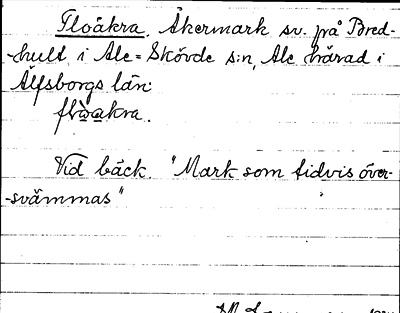 Floåkra. Åkermark sv. på Bred-
-hult i Ale-Skövde s:n, Ale härad i
Älfsborgs län:
Vid bäck. "Mark som tidvis över-
-svämmas"